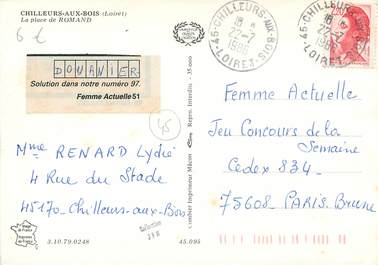 CHILLEURS-AUX-BOIS (Loiret)
La place de ROMAND
6 €
45-CHILLEURS-AUX-BOIS
18 H
22-7
1986
LOIRET
45-CHILLEURS-AUX-BOIS
18 H
22-7
1986
LOIRET
DOUANIER
Solution dans notre numéro 97.
Femme Actuelle 51
45
Mme RENARD Lydie
4 Rue du Stade
45170 Chilleurs-aux-Bois
Femme Actuelle
Jeu Concours de la
Semaine
Cedex 834
75608 PARIS Brune
Combier Imprimeur Mâcon
Repro. Interdite
35.000
3.10.79.0248
45.095